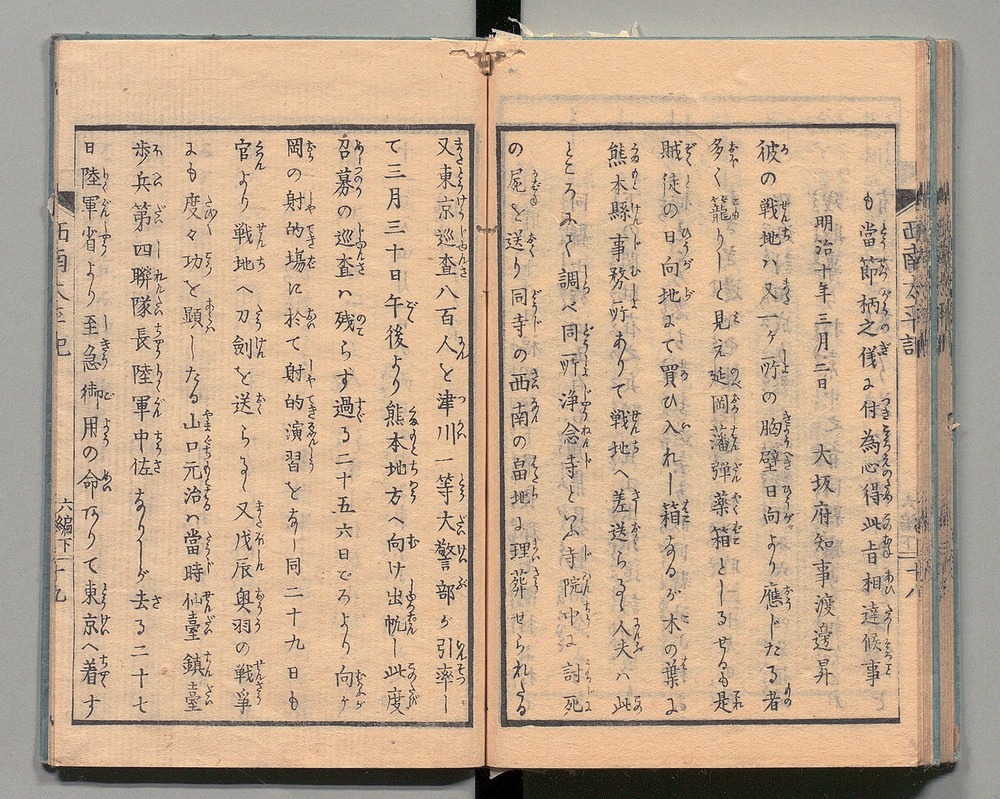 も當節柄之儀に付為心得此旨相達候事
明治十年三月二日　大坂府知事渡邊昇
彼の戦地ハ又一ヶ所の胸壁日向より應じたる者
多く籠りしと見え延岡藩弾薬箱としるせるも是
賊徒の日向地にて買ひ入れし箱なるが木の葉に
熊本縣事務所ありて戦地へ差送らるゝ人夫ハ此
ところにて調べ同所浄念寺といふ寺院中に討死
の屍を送り同寺の西南の畠地に理葬せられたる
又東京巡査八百人を津川一等大警部が引率し
て三月三十日午後より熊本地方へ向け出帆し此度
召募の巡査ハ残らず過る二十五六日ごろより向ヶ
岡の射的場に於て射的演習をなし同二十九日も
官より戦地へ刀劍を送らるゝ又戊辰奥羽の戦爭
にも度々功を顕したる山口元治ハ當時仙臺鎮臺
歩兵第四聯隊長陸軍中佐なりしが去る二十七
日陸軍省より至急御用の命ありて東京へ着す
西南太平記
六編下
十九